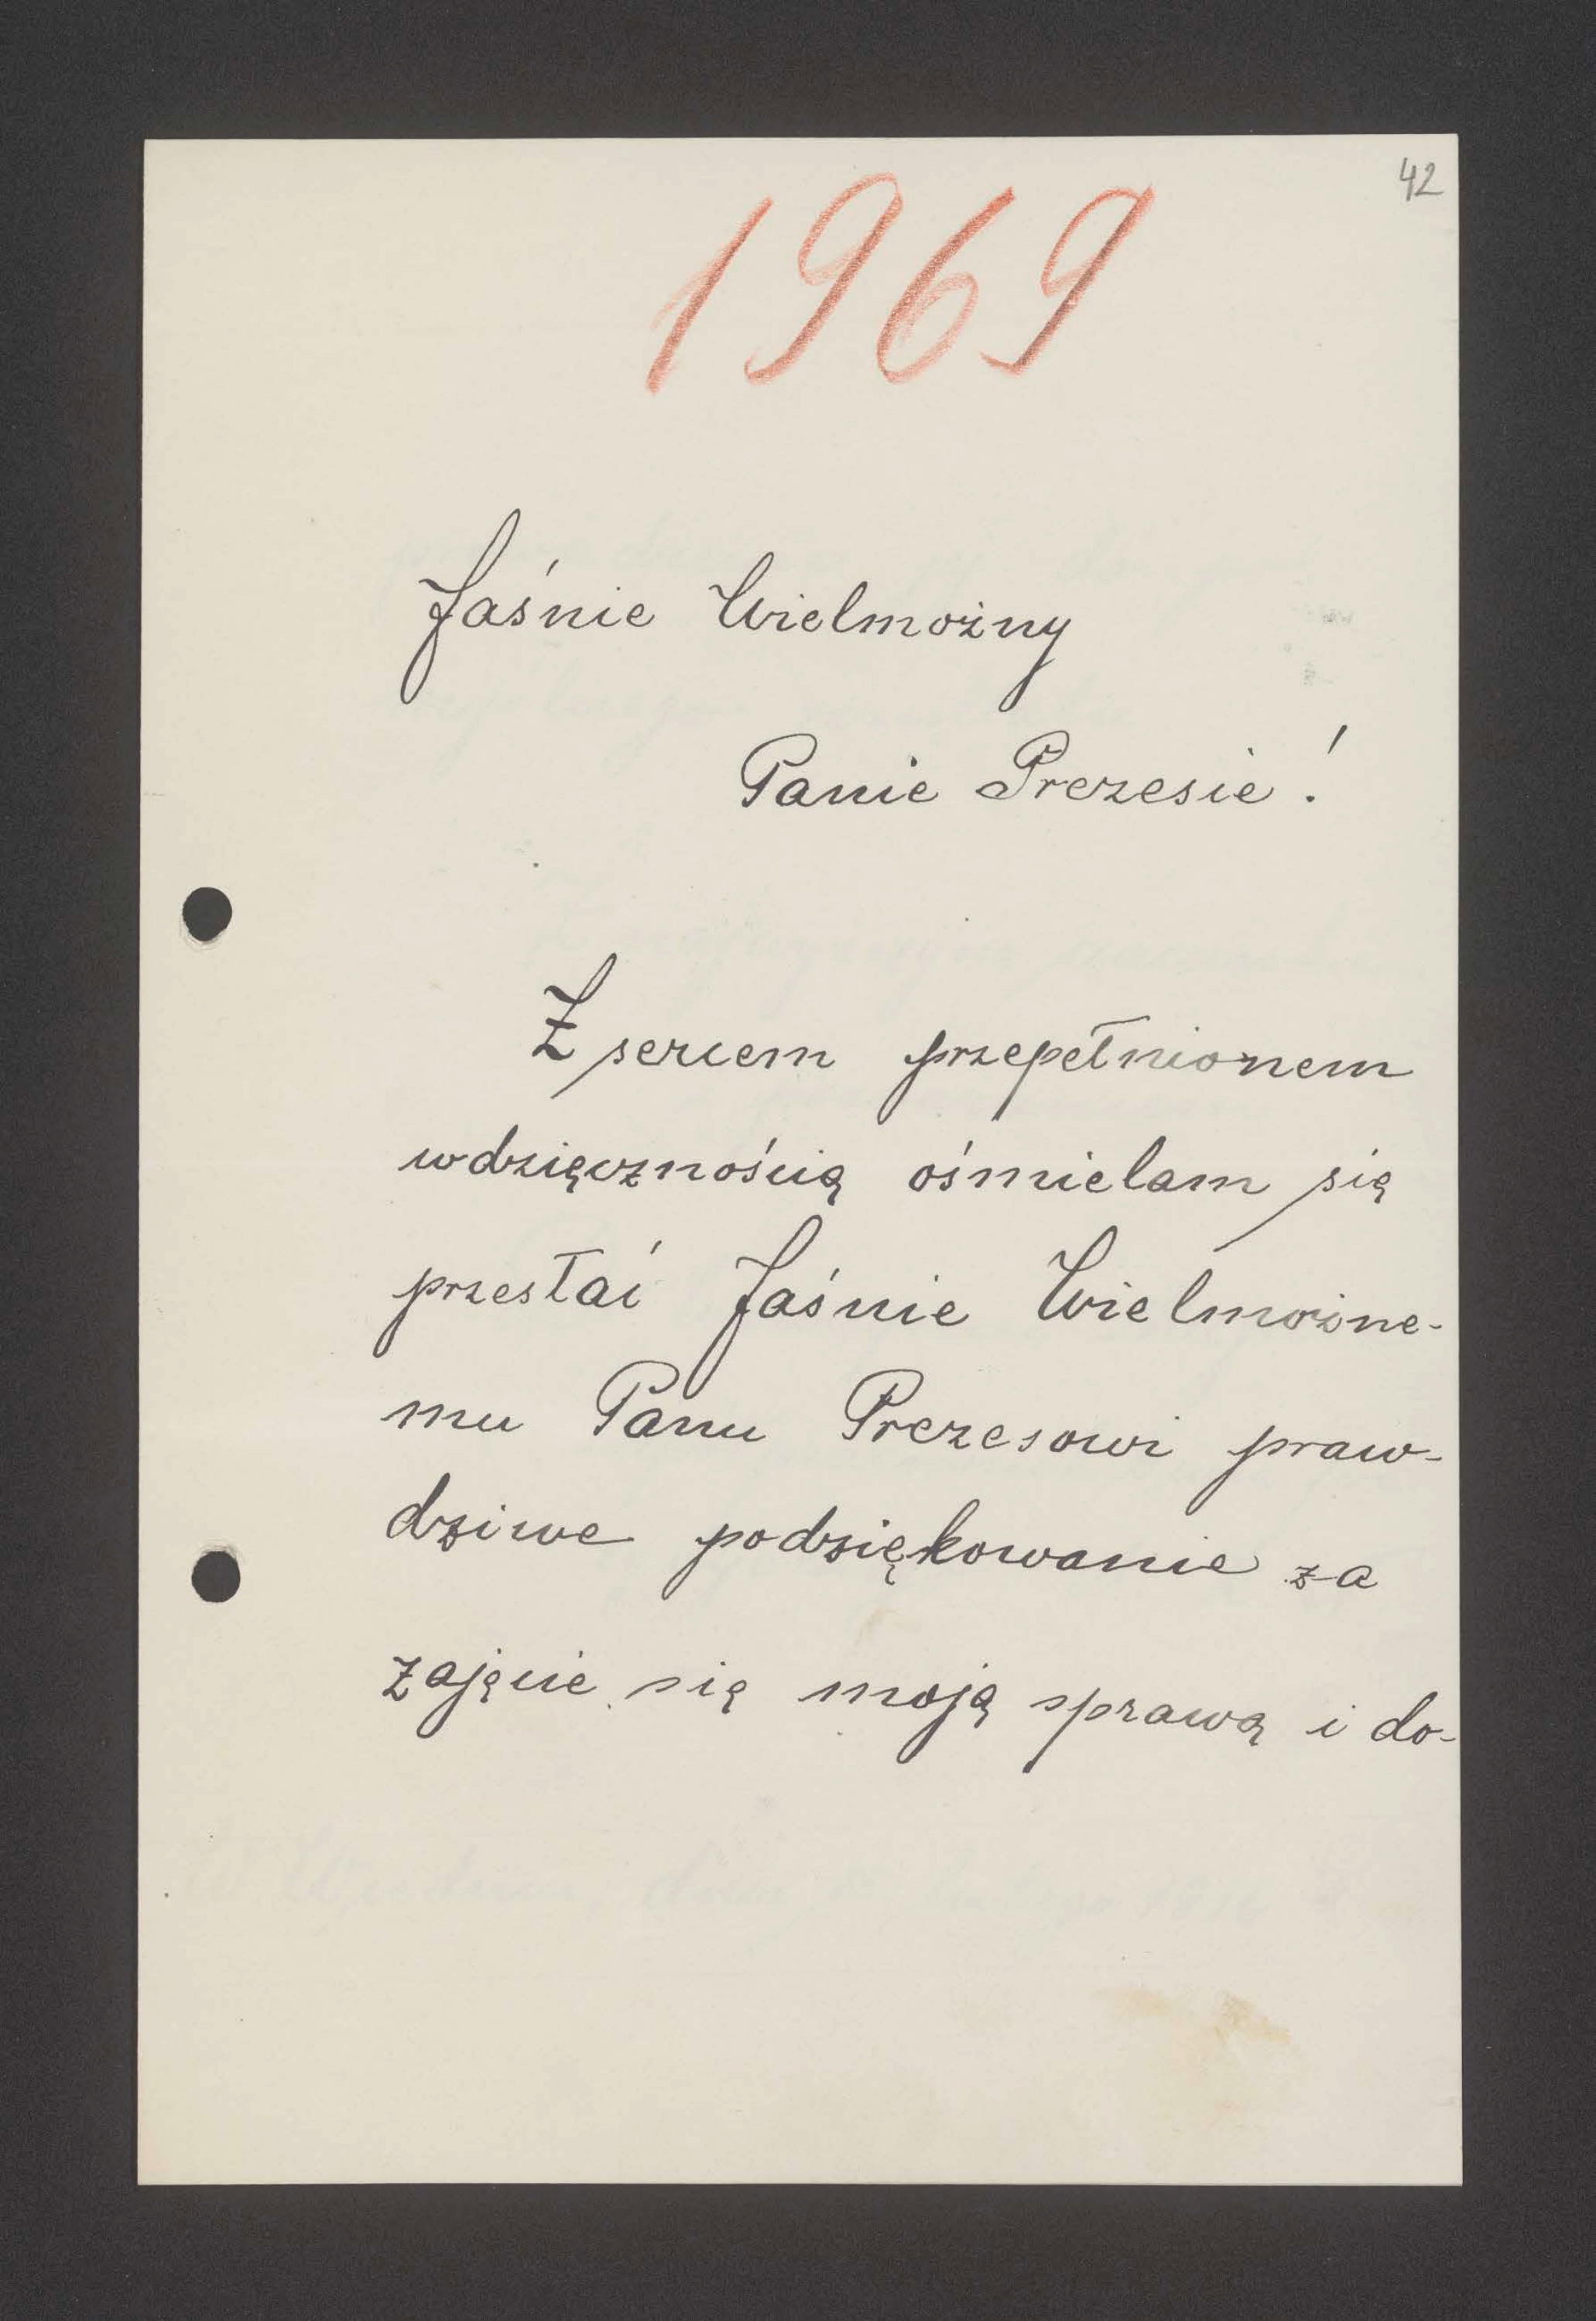 42
1969
Jaśnie Wielmożny
Panie Prezesie!
Z sercem przepełnionem
wdzięcznością ośmielam się
przesłać Jaśnie Wielmożne-
mu Panu Prezesowi praw-
dziwe podziękowanie za
zajęcie się moją sprawą i do-